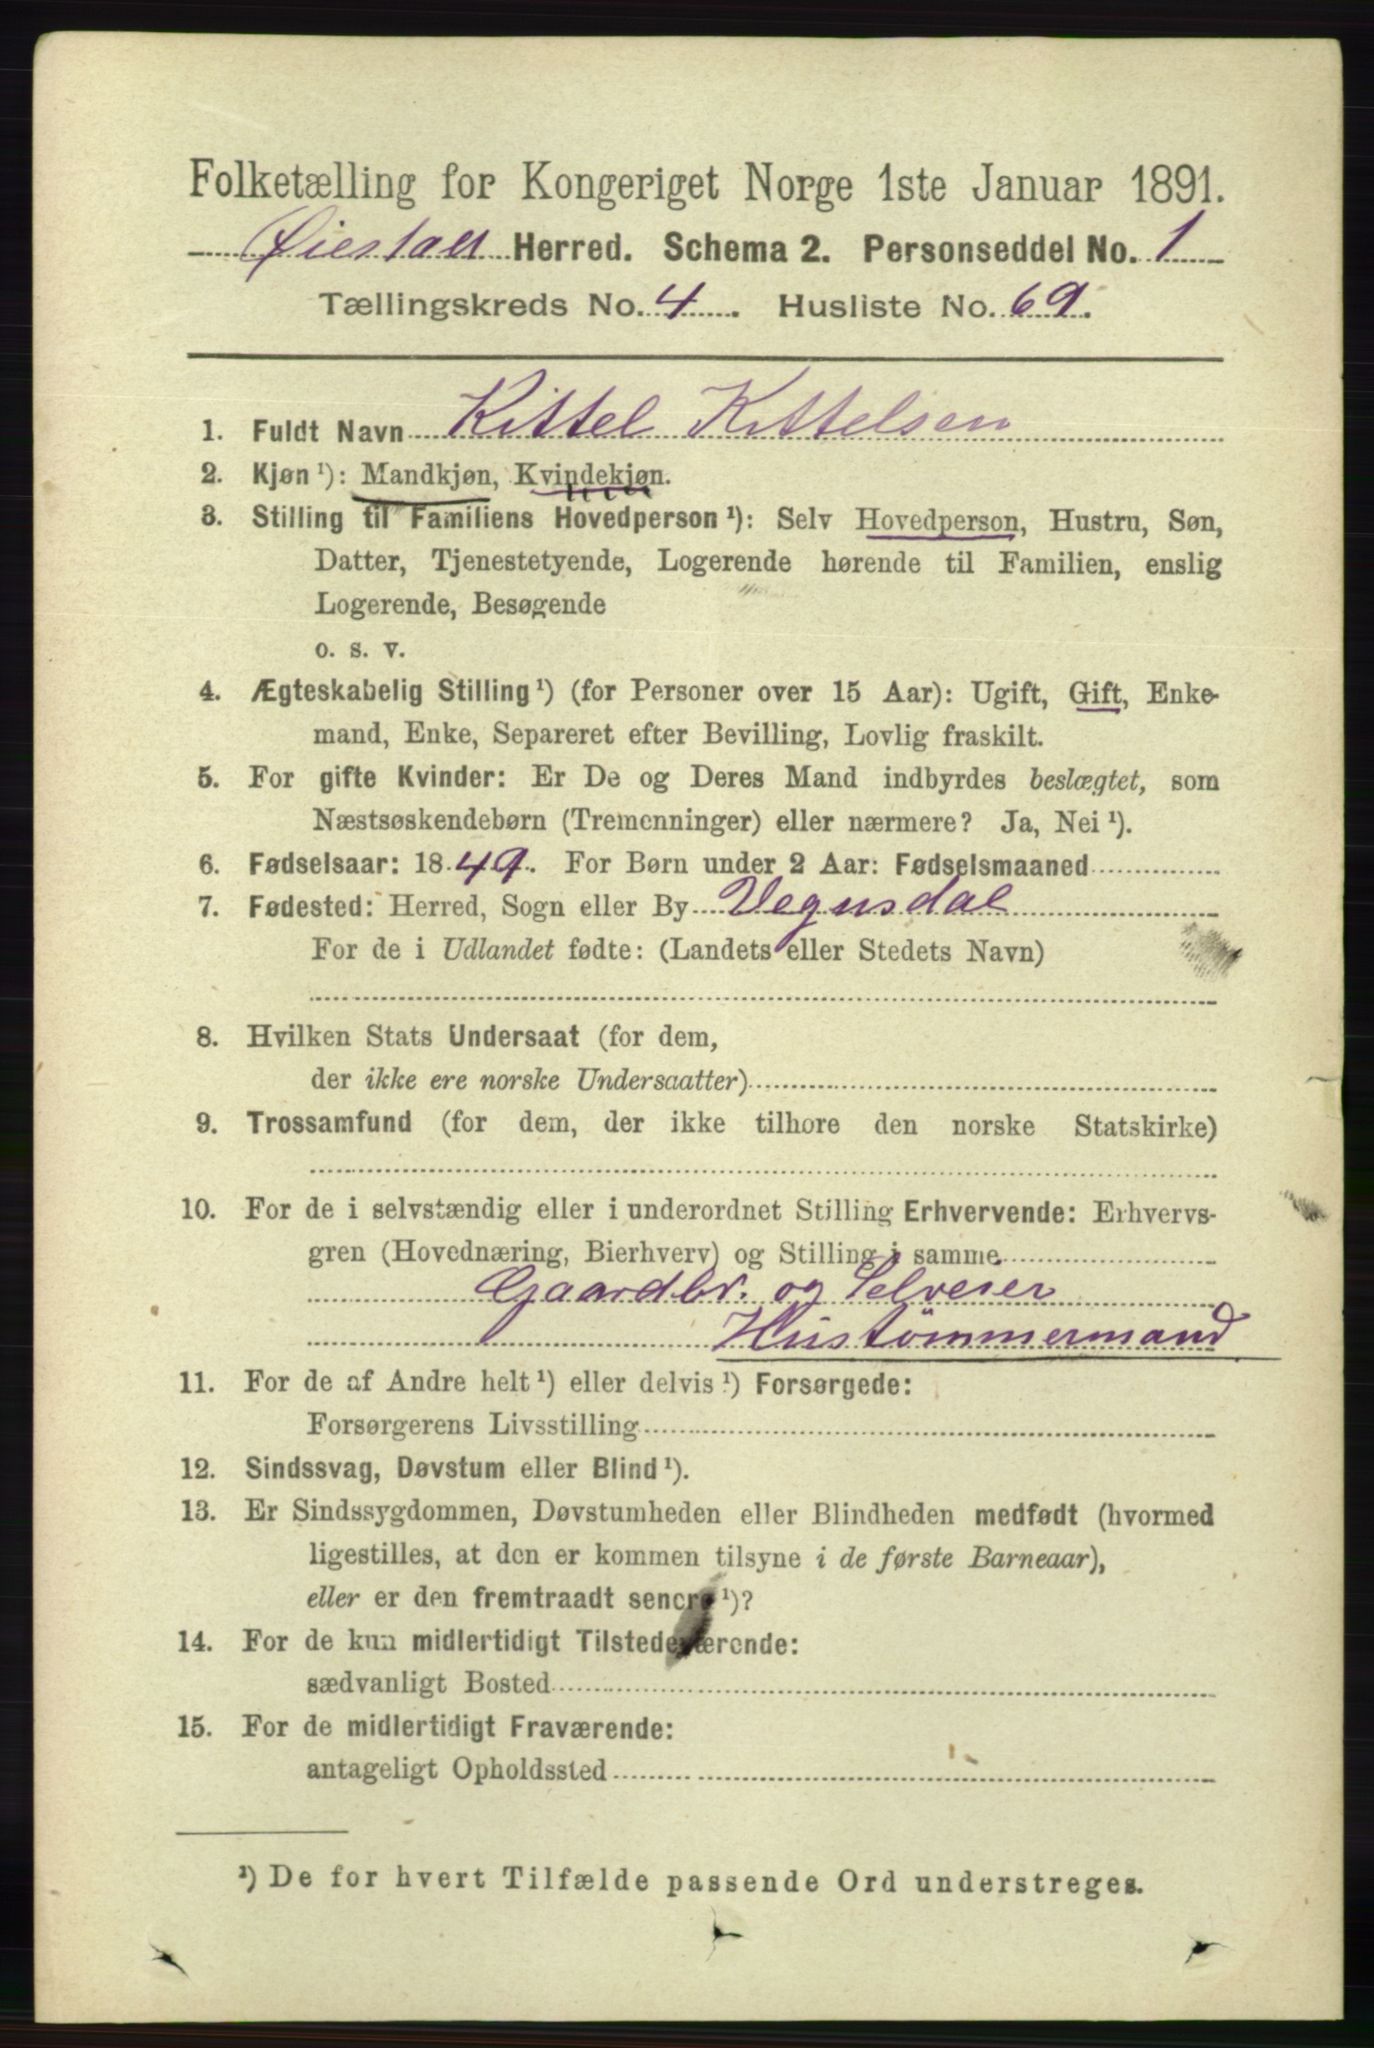 Folketælling for Kongeriget Norge 1ste Januar 1891.
Øiestad Herred. Schema 2. Personseddel No. 1
Tællingskreds No. 4. Husliste No. 69.
1. Fuldt Navn Kittel Kittelsen
2. Kjøn ¹): Mandkjøn, Kvindekjøn.
3. Stilling til Familiens Hovedperson ¹): Selv Hovedperson, Hustru, Søn,
Datter, Tjenestetyende, Logerende hørende til Familien, enslig
Logerende, Besøgende
o. s. v.
4. Ægteskabelig Stilling ¹) (for Personer over 15 Aar): Ugift, Gift, Enke-
mand, Enke, Separeret efter Bevilling, Lovlig fraskilt.
5. For gifte Kvinder: Er De og Deres Mand indbyrdes beslægtet, som
Næstsøskendebørn (Tremenninger) eller nærmere? Ja, Nei ¹).
6. Fødselsaar: 1849. For Børn under 2 Aar: Fødselsmaaned
7. Fødested: Herred, Sogn eller By Vegusdal
For de i Udlandet fødte: (Landets eller Stedets Navn)
8. Hvilken Stats Undersaat (for dem,
der ikke ere norske Undersaatter)
9. Trossamfund (for dem, der ikke tilhøre den norske Statskirke)
10. For de i selvstændig eller i underordnet Stilling Erhvervende: Erhvervs-
gren (Hovednæring, Bierhverv) og Stilling i samme
Gaardbr. og Selveier
Hustømmermand
11. For de af Andre helt ¹) eller delvis ¹) Forsørgede:
Forsørgerens Livsstilling
12. Sindssvag, Døvstum eller Blind ¹).
13. Er Sindssygdommen, Døvstumheden eller Blindheden medfødt (hvormed
ligestilles, at den er kommen tilsyne i de første Barneaar),
eller er den fremtraadt senere ¹)?
14. For de kun midlertidigt Tilstedeværende:
sædvanligt Bosted
15. For de midlertidigt Fraværende:
antageligt Opholdssted
¹) De for hvert Tilfælde passende Ord understreges.